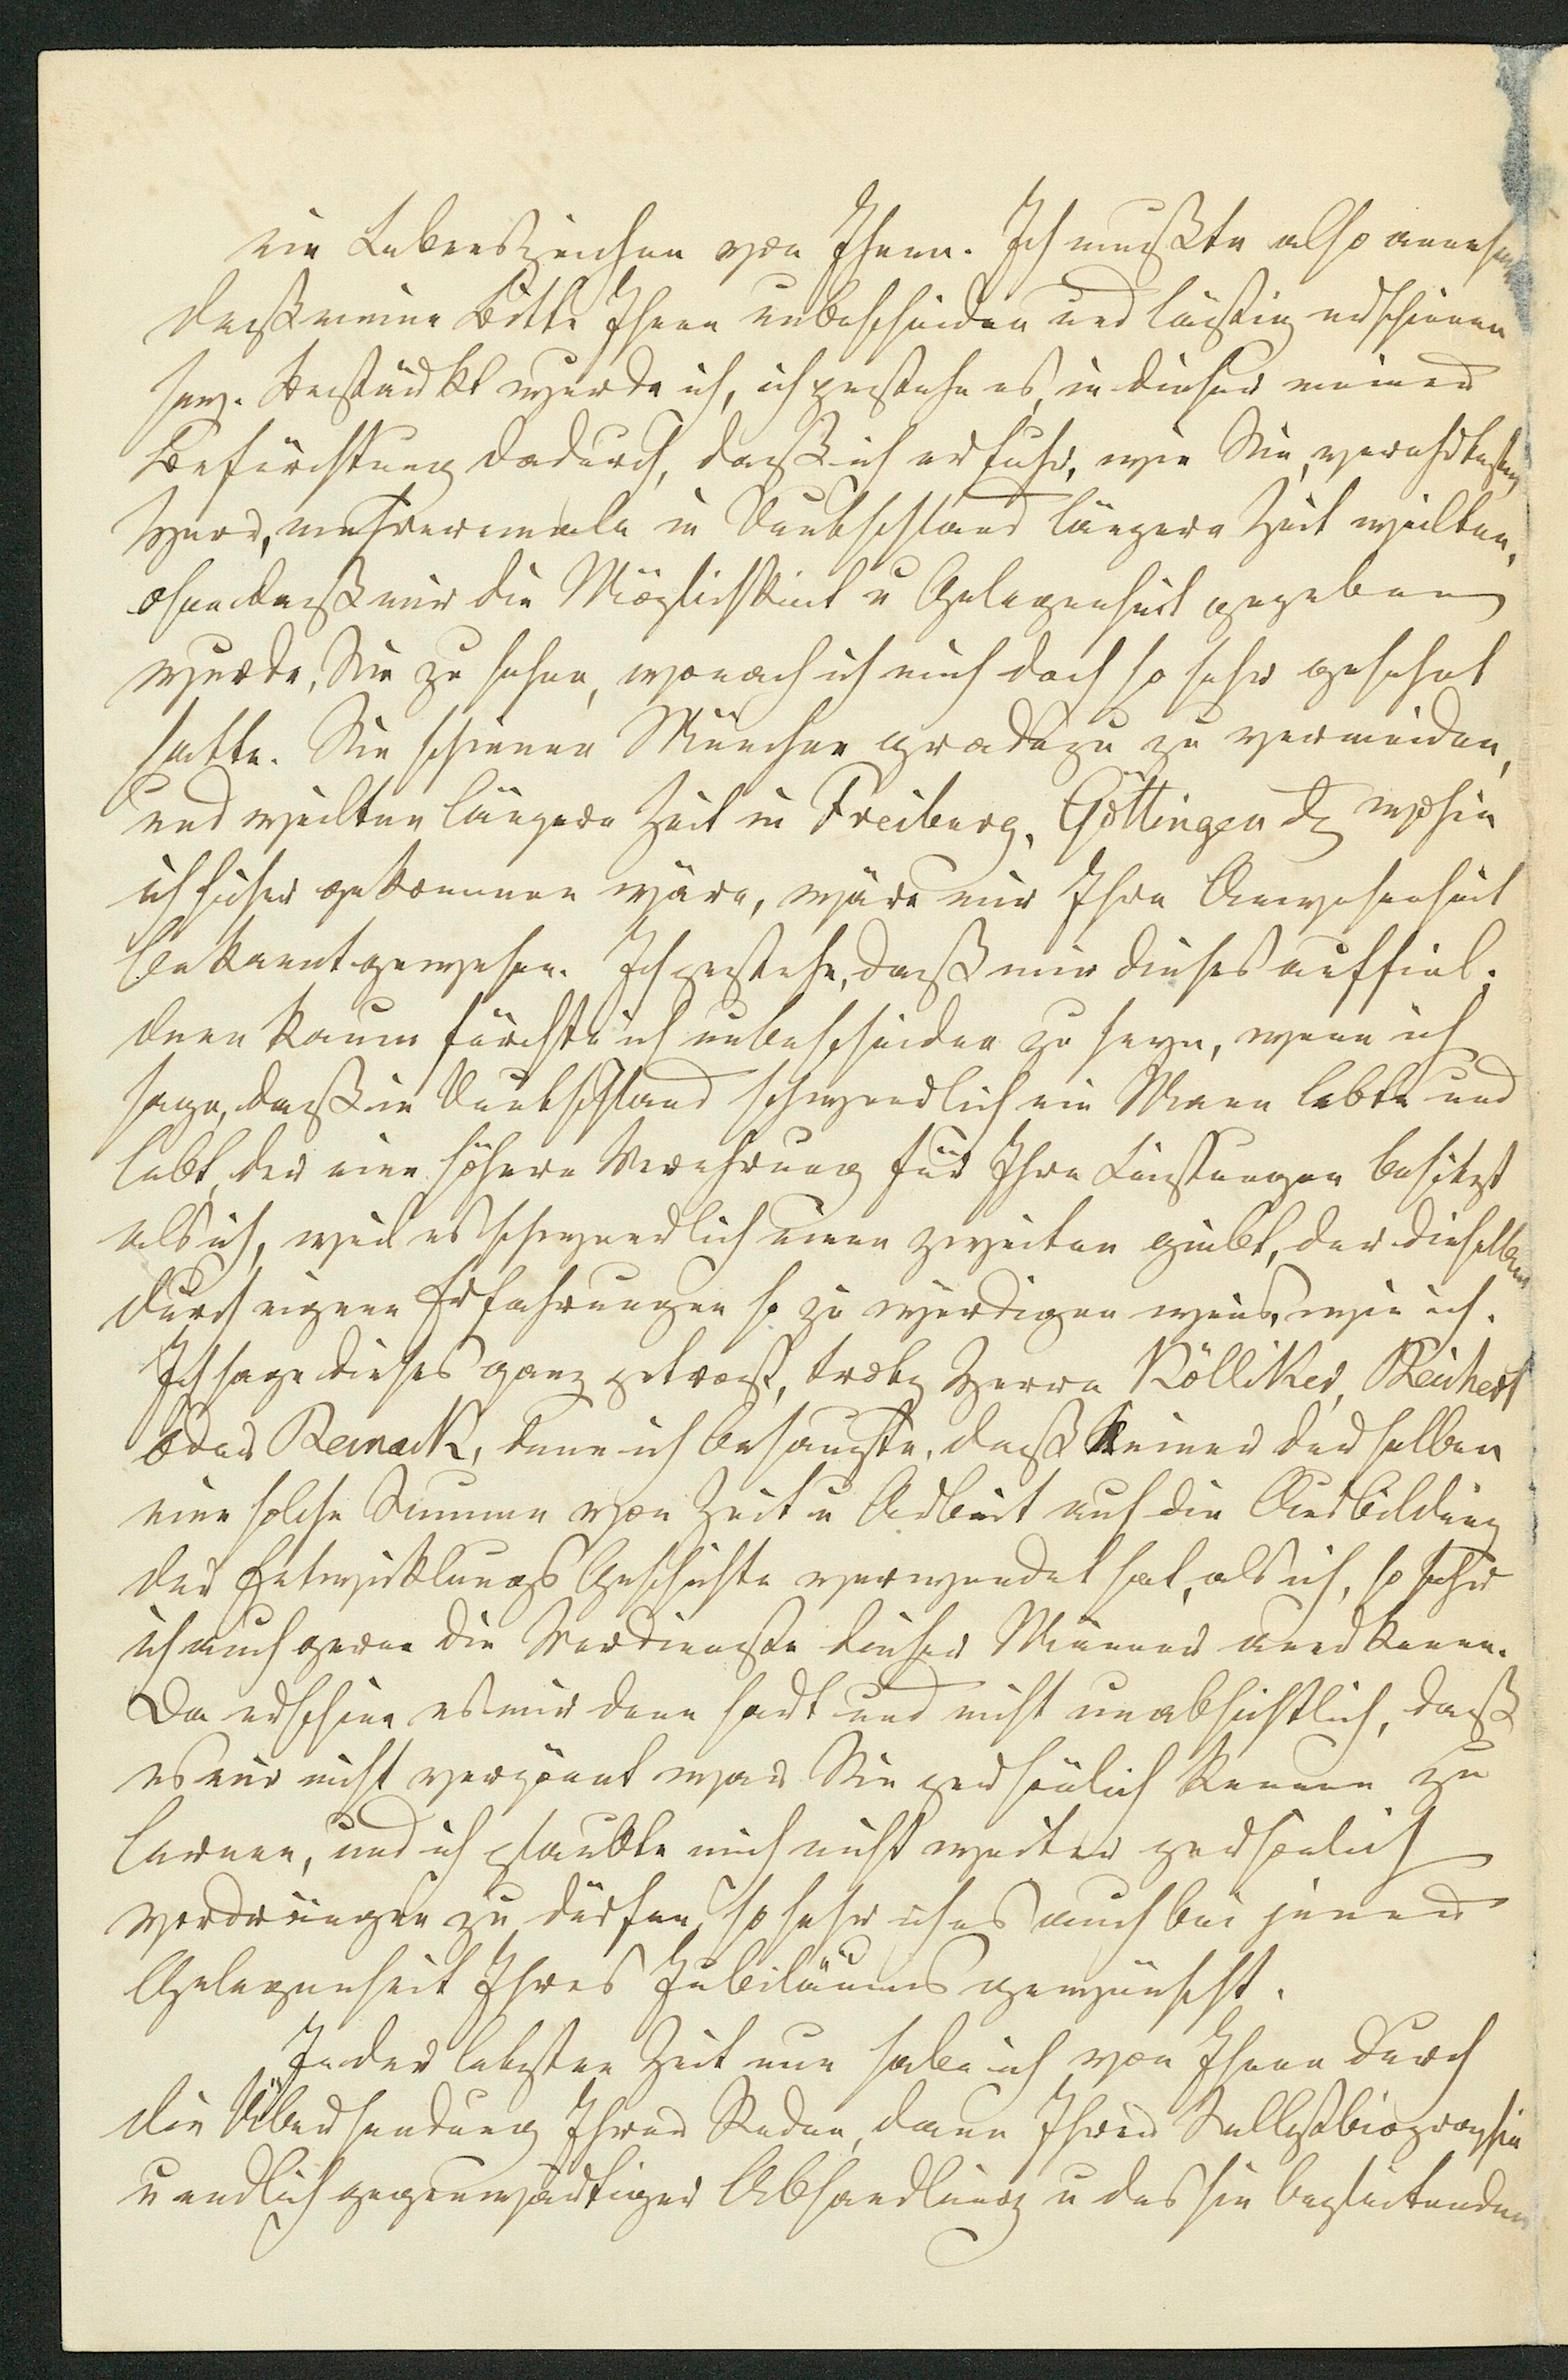 ein Lebenszeichen von Ihnen. Ich mußte also annehmen
daß meine Bitte Ihnen unbescheiden und lästig erschienen
sey. Bestärkt wurde ich, ich gestehe es, in dieser meiner
Befürchtung dadurch, daß ich erfuhr, wie Sie, verehrtester
Herr, mehreremale in Deutschland längere Zeit weilten,
ohne daß mir die Möglichkeit u Gelegenheit gegeben
wurde, Sie zu sehen, wonach ich mich doch so sehr gesehnt
hatte. Sie schienen München gradezu zu vermeiden,
und weilten längere Zeit in Freiburg, Göttingen etc wohin
ich sicher gekommen wäre, wäre mir Ihre Anwesenheit
bekannt gewesen. Ich gestehe, daß mir dieses auffiel;
denn kaum fürchte ich unbescheiden zu seyn, wenn ich
sage, daß in Deutschland schwerlich ein Mann lebte und
lebt, der eine höhere Verehrung für Ihre Leistungen besitzt
als ich, weil es schwerlich einen zweiten giebt, der dieselben
durch eigene Erfahrungen so zu würdigen weis, wie ich.
Ich sage dieses ganz getrost, trotz Herrn Kölliker, Reichert
oder Remack, denn ich behaupte, daß keiner derselben
eine solche Summe von Zeit u Arbeit auf die Ausbildung
der Entwicklungs Geschichte verwendet hat, als ich, so sehr
ich auch gerne die Verdienste dieser Männer anerkenne.
Da erschien es mir denn hart und nicht unabsichtlich, daß
es mir nicht vergönnt war Sie persönlich kennen zu
lernen, und ich glaubte mich nicht weiter persönlich
vordrängen zu dürfen, so sehr ich es auch bei jener
Gelegenheit Ihres Jubiläums gewünscht.
In der letzten Zeit nun habe ich von Ihnen durch
die Übersendung Ihrer Reden, dann Ihrer Selbstbiographie
u endlich gegenwärtiger Abhandlung u des sie begleitenden